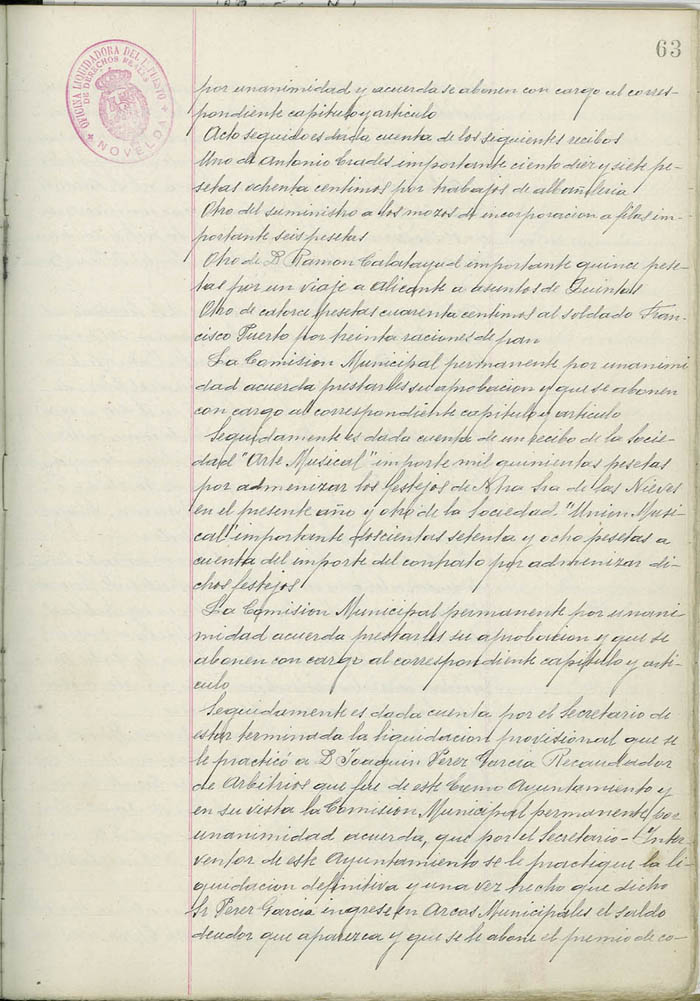 63
OFICINA LIQUIDADORA DEL IMPUESTO
DE DERECHOS REALES
NOVELDA
por unanimidad y acuerda se abonen con cargo al corres-
pondiente capitulo y articulo
Acto seguido es dada cuenta de los siguientes recibos
Uno de Antonio Crades importante ciento diez y siete pe-
setas ochenta centimos por trabajos de albañileria
Otro del suministro a los mozos de incorporacion a filas im-
portante seis pesetas
Otro de D Ramon Calatayud importante quince pese-
tas por un viaje a Alicante a asuntos de Quintas
Otro de catorce pesetas cuarenta centimos al soldado Fran-
cisco Puerto por treinta raciones de pan
La Comision Municipal permanente por unanimi
dad acuerda prestarles su aprobacion y que se abonen
con cargo al correspondiente capitulo y articulo
Seguidamente es dada cuenta de un recibo de la Socie-
dad "Arte Musical" importe mil quinientas pesetas
por admenizar los festejos de Ntra Sra de las Nieves
en el presente año y otro de la Sociedad "Union Musi-
cal" importante doscientas setenta y ocho pesetas a
cuenta del importe del contrato por admenizar di-
chos festejos
La Comision Municipal permanente por unani
midad acuerda prestarles su aprobacion y que se
abonen con cargo al correspondiente capitulo y arti-
culo
Seguidamente es dada cuenta por el Secretario de
estar terminada la liquidacion provisional que se
le practicó a D Joaquin Perez Garcia Recaudador
de Arbitrios que fue de este Excmo Ayuntamiento y
en su vista la Comision Municipal permanente por
unanimidad acuerda, que por el Secretario-Inter
ventor de este Ayuntamiento se le practique la li
quidacion definitiva y una vez hecho que dicho
Sr Perez Garcia ingrese en Arcas Municipales el saldo
deudor que aparezca y que se le abone el premio de co-